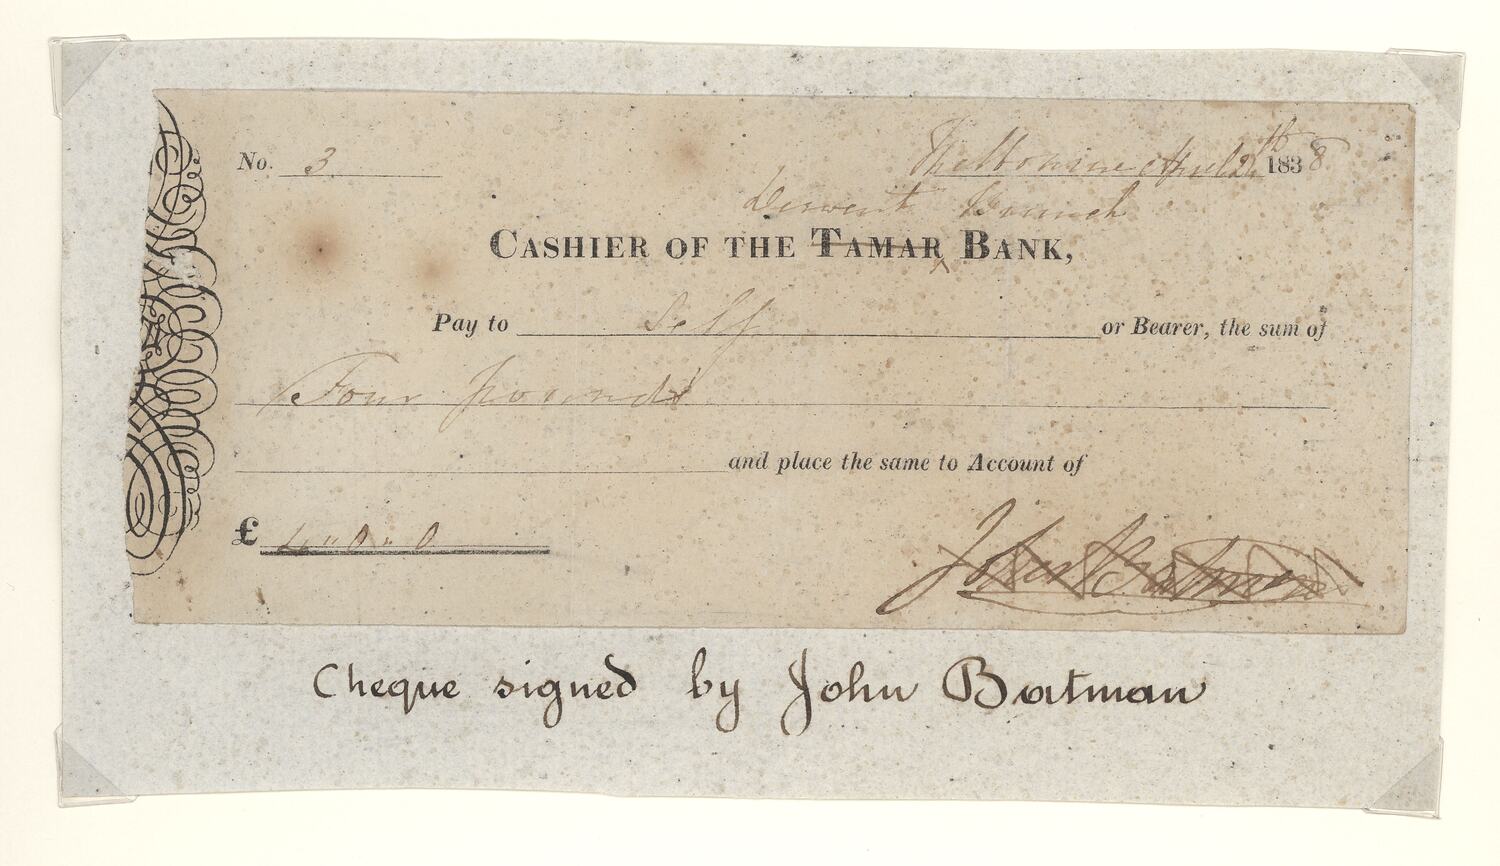 No. 3. Melbourne April 24th 1838
Derwent Branch
CASHIER OF THE TAMAR BANK,
Pay to Self or Bearer, the sum of
Four pounds
and place the same to Account of
£ 4 " 0 " 0
John Batman
Cheque signed by John Batman